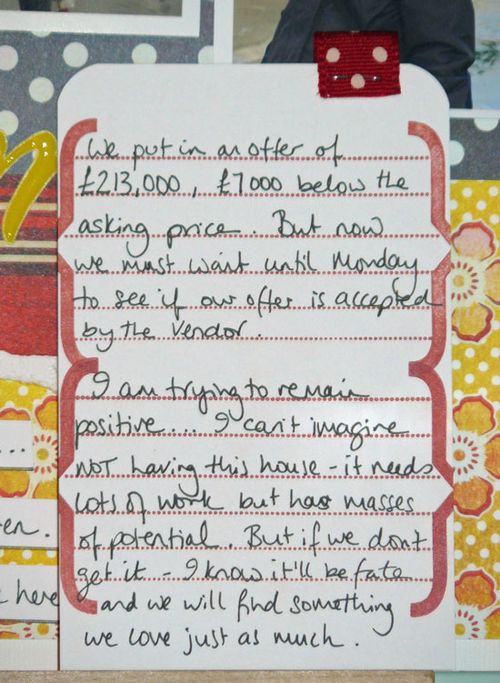 We put in an offer of
£213,000, £7000 below the
asking price. But now
we must wait until Monday
to see if our offer is accepted
by the Vendor.
I am trying to remain
positive.... I can't imagine
NOT having this house - it needs
lots of work but has masses
of potential. But if we don't
get it - I know it'll be fate
and we will find something
we love just as much.
...
en.
here